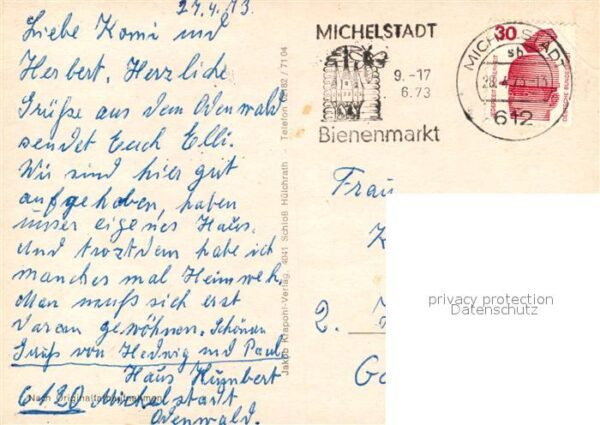 27.4.73.
Liebe Komi und
Herbert, Herzliche
Grüße aus dem Odenwald
sendet Euch Elli.
Wir sind hier gut
aufgehoben, haben
unser eigenes Haus.
Und trotzdem habe ich
manches mal Heimweh,
Man muß sich erst
daran gewöhnen. Schönen
Gruß von Hedwig und Paul
Haus Humbert
6120 Michelstadt
Odenwald.
Nach Originalfarbaufnahmen
Jakob Krapohl-Verlag, 4041 Schloß Hülchrath Telefon 02182 / 71 04
MICHELSTADT
9.-17
6.73
Bienenmarkt
MICHELSTADT
sb
612
30
DEUTSCHE BUNDESPOST
Frau
K
2.
privacy protection
Datenschutz